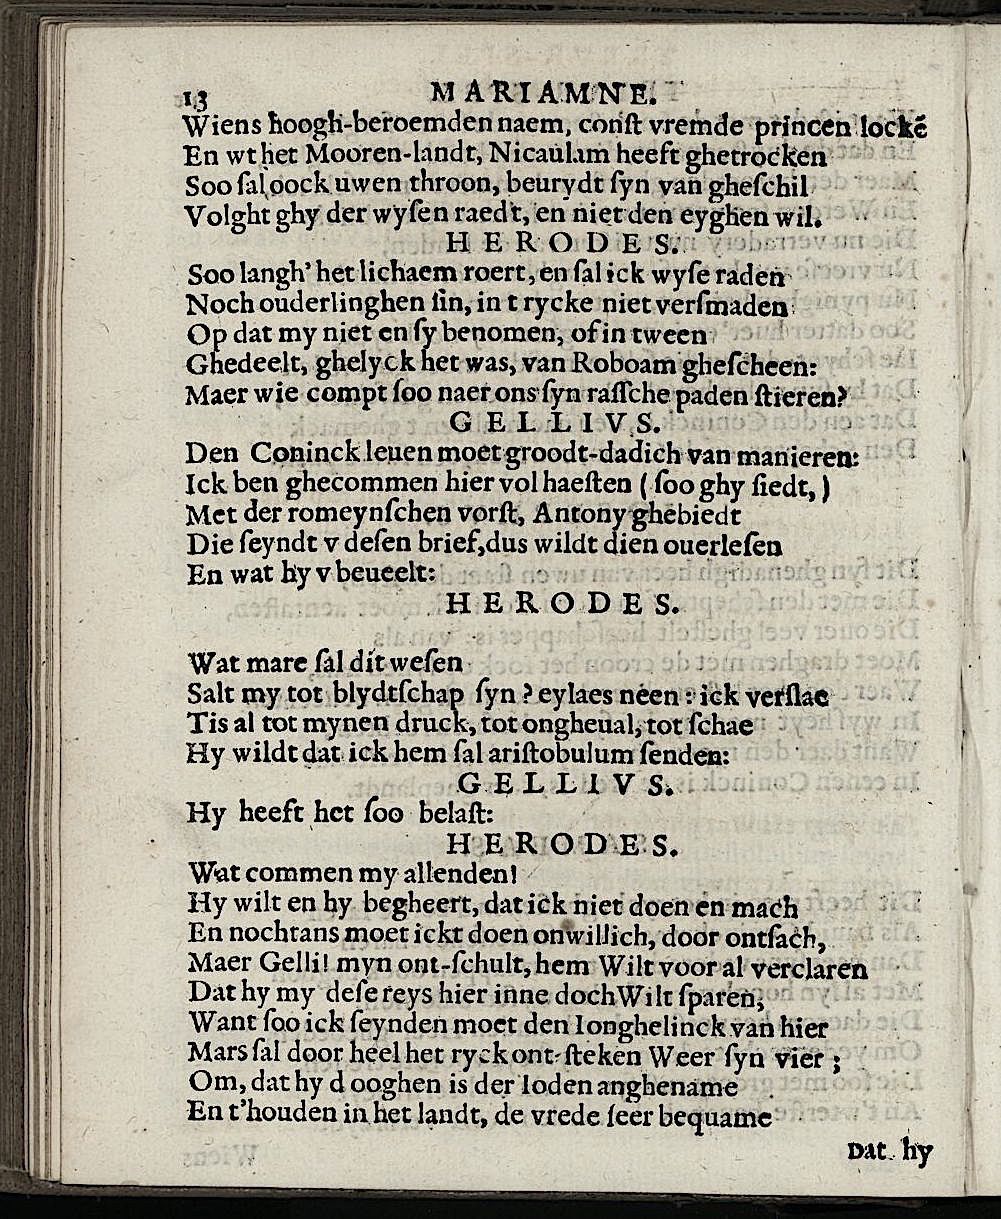 13
MARIAMNE.
Wiens hoogh-beroemden naem, conſt vremde princen lockē
En wt het Mooren-landt, Nicaulam heeft ghetrocken
Soo ſal oock uwen throon, beurydt ſyn van gheſchil
Volght ghy der wyſen raedt, en niet den eyghen wil.
HERODES.
Soo langh' het lichaem roert, en ſal ick wyſe raden
Noch ouderlinghen ſin, in t rycke niet verſmaden
Op dat my niet en ſy benomen, of in tween
Ghedeelt, ghelyck het was, van Roboam gheſcheen:
Maer wie compt ſoo naer ons ſyn raſſche paden ſtieren?
GELLIVS.
Den Coninck leuen moet groodt-dadich van manieren:
Ick ben ghecommen hier vol haeſten (ſoo ghy ſiedt,)
Met der romeynſchen vorſt, Antony ghebiedt
Die ſeyndt v deſen brief,dus wildt dien ouerleſen
En wat hy v beueelt:
HERODES.
Wat mare ſal dit weſen
Salt my tot blydtſchap ſyn? eylaes neen: ick verſlae
Tis al tot mynen druck, tot ongheual, tot ſchae
Hy wildt dat ick hem ſal ariſtobulum ſenden:
GELLIVS.
Hy heeft het ſoo belaſt:
HERODES.
Wat commen my allenden!
Hy wilt en hy begheert, dat ick niet doen en mach
En nochtans moet ickt doen onwillich, door ontſach,
Maer Gelli! myn ont-ſchult, hem Wilt voor al verclaren
Dat hy my deſe reys hier inne doch Wilt ſparen,
Want ſoo ick ſeynden moet den Ionghelinck van hier
Mars ſal door heel het ryck ont-ſteken Weer ſyn vier;
Om, dat hy d ooghen is der Ioden anghename
En t'houden in het landt, de vrede ſeer bequame
Dat hy